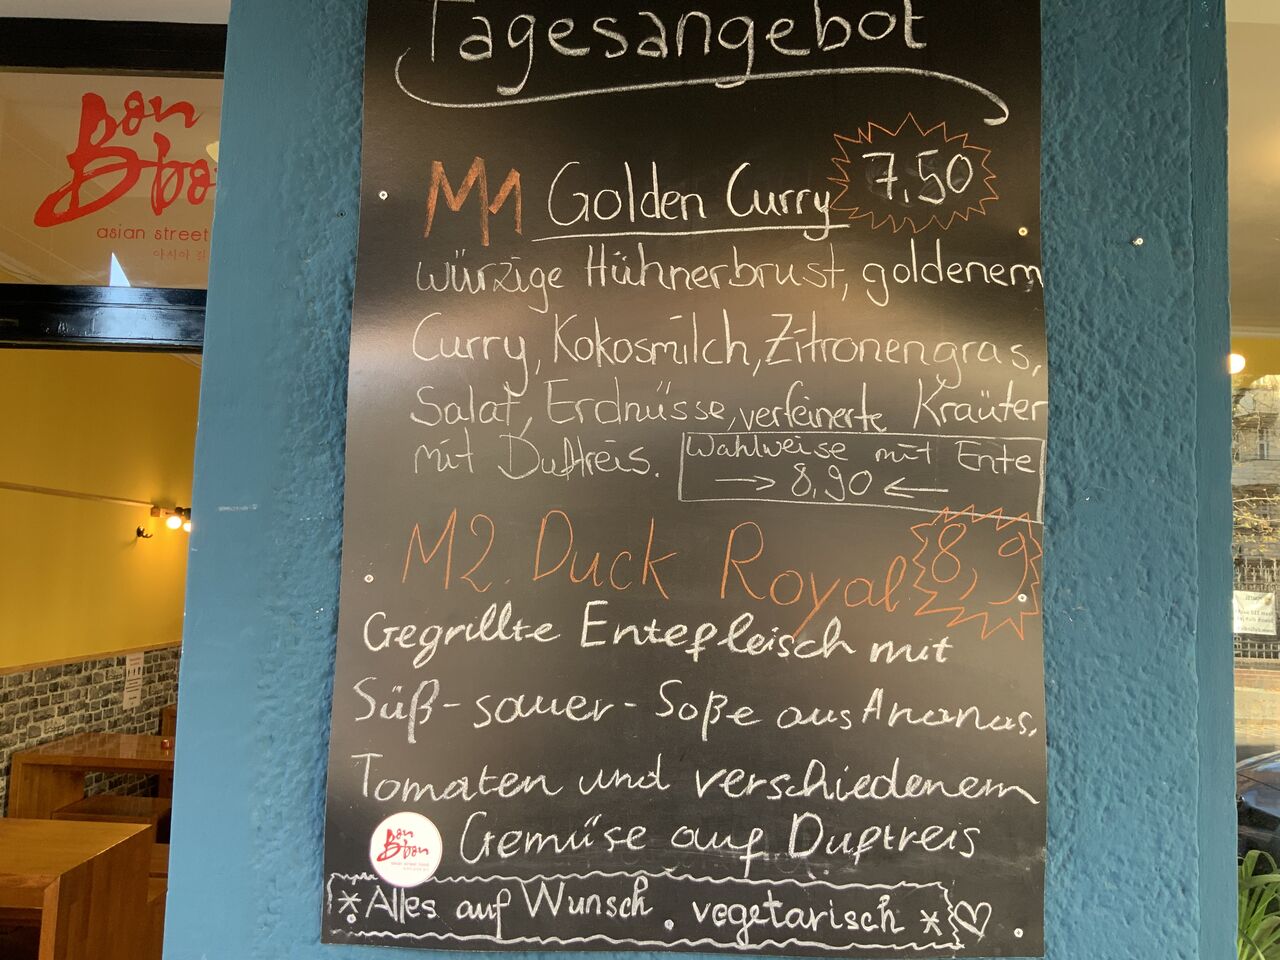 Tagesangebot
Bon
Bbo
asian street
아시아
M1 Golden Curry 7,50
würzige Hühnerbrust, goldenem
Curry, Kokosmilch, Zitronengras,
Salat, Erdnüsse, verfeinerte Kräuter
mit Duftreis. Wahlweise mit Ente
→ 8,90 ←
M2. Duck Royal 8,9
Gegrillte Entefleisch mit
Süß-sauer-Soße aus Ananas,
Tomaten und verschiedenem
Gemüse auf Duftreis
Bon
Bbon
*Alles auf Wunsch vegetarisch * ♡